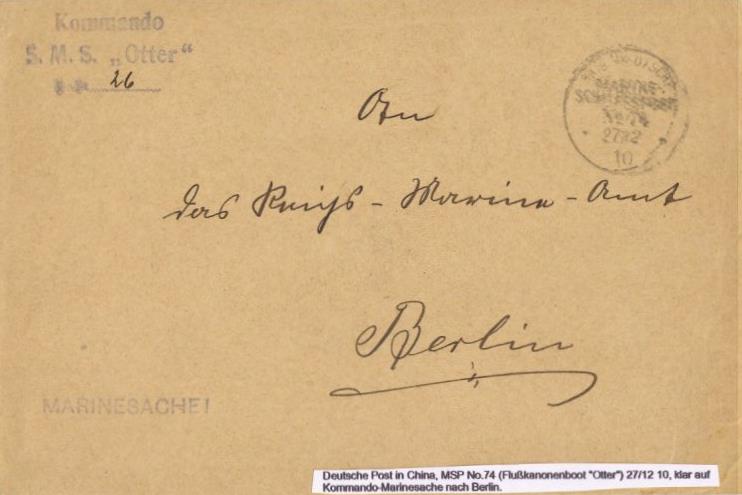 Kommando
S. M. S. „Otter“
26
An
das Reichs-Marine-Amt
Berlin
MARINESACHE!
MARINE-
SCHIFFSPOST
No 74
27/12
10
Deutsche Post in China, MSP No.74 (Flußkanonenboot "Otter") 27/12 10, klar auf
Kommando-Marinesache nach Berlin.